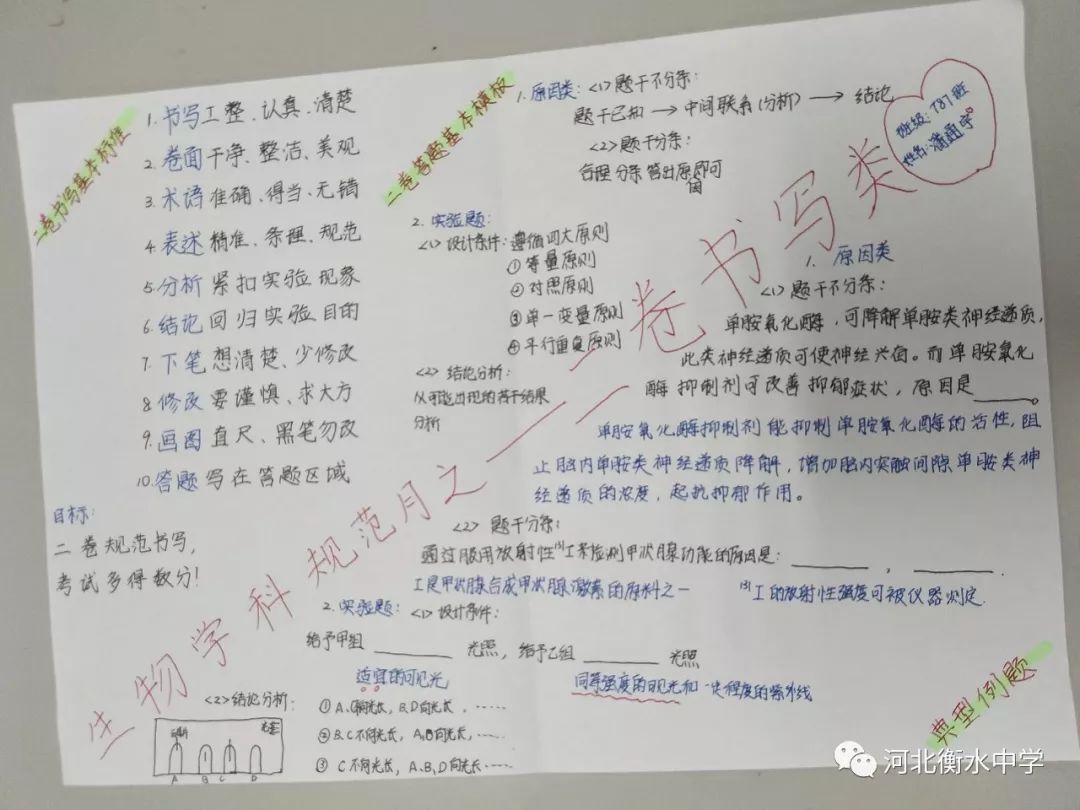 二卷书写基本标准
1. 书写工整、认真、清楚
2. 卷面干净、整洁、美观
3. 术语准确、得当、无错
4. 表述精准、条理、规范
5. 分析紧扣实验现象
6. 结论回归实验目的
7. 下笔想清楚、少修改
8. 修改要谨慎、求大方
9. 画图直尺、黑笔勿改
10. 答题写在答题区域
目标:
二卷规范书写,
考试多得数分!
二卷答题基本模版
1. 原因类: <1>题干不分条:
题干已知 → 中间联系(分析) → 结论
<2>题干分条:
合理分条答出原因即可
2. 实验题:
<1> 设计条件: 遵循四大原则
① 等量原则
② 对照原则
③ 单一变量原则
④ 平行重复原则
<2> 结论分析:
从可能出现的若干结果
分析
班级: 787班
姓名: 潘通宇
生物学科规范月之——二卷书写类
1. 原因类
<1>题干不分条:
单胺氧化酶,可降解单胺类神经递质,
此类神经递质可使神经兴奋。而单胺氧化
酶抑制剂可改善抑郁症状,原因是______。
单胺氧化酶抑制剂能抑制单胺氧化酶的活性,阻
止脑内单胺类神经递质降解,增加脑内突触间隙单胺类神
经递质的浓度,起抗抑郁作用。
<2> 题干分条:
通过服用放射性¹³¹I来检测甲状腺功能的原因是: ______ , ______ .
I是甲状腺合成甲状腺激素的原料之一 ¹³¹I的放射性强度可被仪器测定.
2. 实验题: <1> 设计条件:
给予甲组 ______ 光照, 给予乙组 ______ 光照
适宜的可见光 同等强度的可见光和一定程度的紫外线
<2>结论分析:
① A、C向光长, B、D向光长, ……
② B、C不向光长, A、D向光长, ……
③ C不向光长, A、B、D向光长……
A B C D
典型例题
河北衡水中学